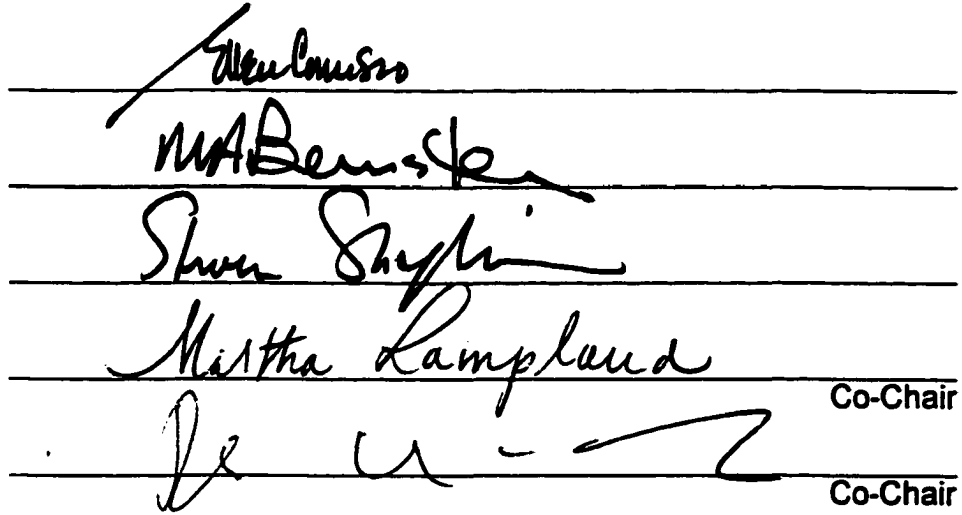 M A Bernstein
Steven Shapin
Martha Lampland
Co-Chair
Co-Chair